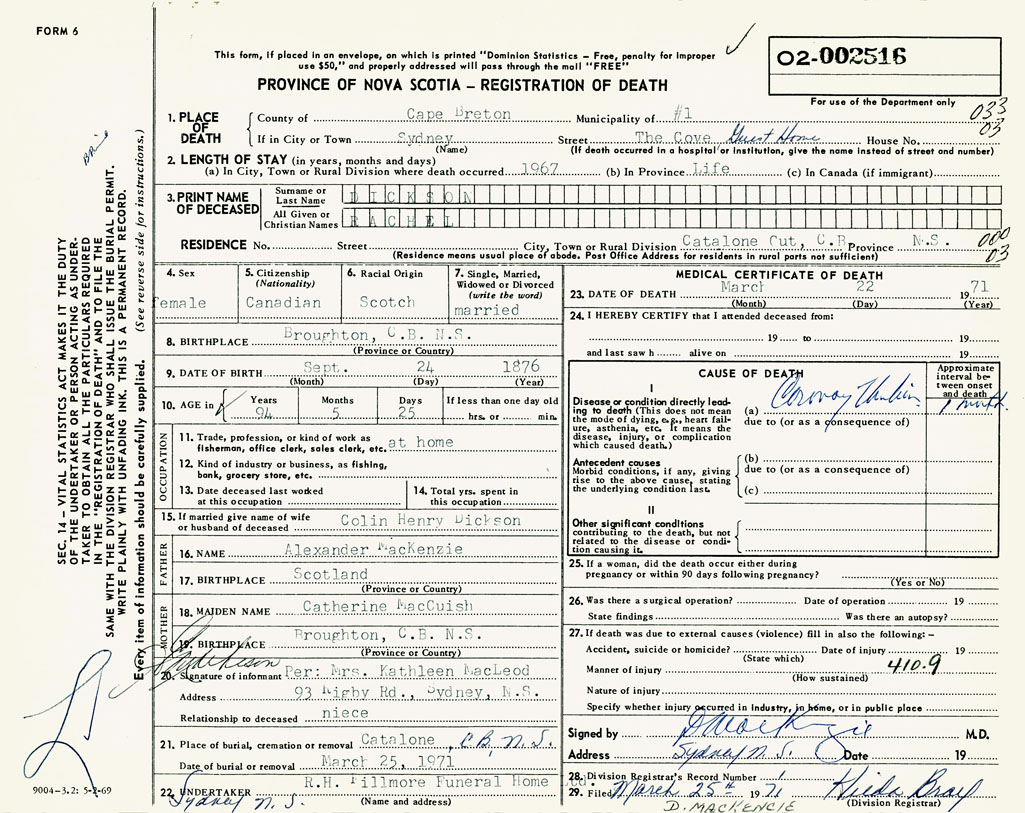 FORM 6
This form, if placed in an envelope, on which is printed "Dominion Statistics - Free, penalty for improper
use $50," and properly addressed will pass through the mail "FREE"
02-002516
PROVINCE OF NOVA SCOTIA - REGISTRATION OF DEATH
For use of the Department only
033
03
1. PLACE OF DEATH
County of Cape Breton Municipality of #1
If in City or Town Sydney Street The Cove Guest Home House No.
(Name) (If death occurred in a hospital or institution, give the name instead of street and number)
2. LENGTH OF STAY (in years, months and days)
(a) In City, Town or Rural Division where death occurred 1967 (b) In Province Life (c) In Canada (if immigrant)
3. PRINT NAME OF DECEASED
Surname or Last Name DICKSON
All Given or Christian Names RACHEL
RESIDENCE No. Street City, Town or Rural Division Catalone Gut, C.B Province N.S. 000
(Residence means usual place of abode. Post Office Address for residents in rural parts not sufficient) 03
4. Sex
female
5. Citizenship
(Nationality)
Canadian
6. Racial Origin
Scotch
7. Single, Married,
Widowed or Divorced
(write the word)
married
8. BIRTHPLACE Broughton, C.B. N.S.
(Province or Country)
9. DATE OF BIRTH Sept. 24 1876
(Month) (Day) (Year)
10. AGE in Years Months Days If less than one day old
94 5 25 hrs. or min.
OCCUPATION
11. Trade, profession, or kind of work as
fisherman, office clerk, sales clerk, etc. at home
12. Kind of industry or business, as fishing,
bank, grocery store, etc.
13. Date deceased last worked
at this occupation
14. Total yrs. spent in
this occupation
15. If married give name of wife
or husband of deceased Colin Henry Dickson
FATHER
16. NAME Alexander MacKenzie
17. BIRTHPLACE Scotland
(Province or Country)
MOTHER
18. MAIDEN NAME Catherine MacCuish
19. BIRTHPLACE Broughton, C.B. N.S.
(Province or Country)
20. Signature of informant Per: Mrs. Kathleen MacLeod
Address 93 Rigby Rd., Sydney, N.S.
Relationship to deceased niece
21. Place of burial, cremation or removal Catalone, C.B, N.S.
Date of burial or removal March 25, 1971
22. UNDERTAKER R.H. Fillmore Funeral Home Ltd.
Sydney N.S. (Name and address)
MEDICAL CERTIFICATE OF DEATH
23. DATE OF DEATH March 22 1971
(Month) (Day) (Year)
24. I HEREBY CERTIFY that I attended deceased from:
19 to 19
and last saw h alive on 19
CAUSE OF DEATH
Approximate
interval be-
tween onset
and death
I
Disease or condition directly lead-
ing to death (This does not mean
the mode of dying, e.g., heart fail-
ure, asthenia, etc. It means the
disease, injury, or complication
which caused death.)
(a)
due to (or as a consequence of)
Antecedent causes
Morbid conditions, if any, giving
rise to the above cause, stating
the underlying condition last.
(b)
due to (or as a consequence of)
(c)
II
Other significant conditions
contributing to the death, but not
related to the disease or condi-
tion causing it.
25. If a woman, did the death occur either during
pregnancy or within 90 days following pregnancy?
(Yes or No)
26. Was there a surgical operation? Date of operation 19
State findings Was there an autopsy?
27. If death was due to external causes (violence) fill in also the following:-
Accident, suicide or homicide? Date of injury 19
(State which)
Manner of injury 410.9
(How sustained)
Nature of injury
Specify whether injury occurred in industry, in home, or in public place
Signed by D MacKenzie M.D.
Address Sydney N.S. Date 19
28. Division Registrar's Record Number 1
29. Filed March 25th 1971 Hilda Bray
D. MACKENCIE (Division Registrar)
SEC. 14 - VITAL STATISTICS ACT MAKES IT THE DUTY
OF THE UNDERTAKER OR PERSON ACTING AS UNDER-
TAKER TO OBTAIN ALL THE PARTICULARS REQUIRED
IN THE "REGISTRATION OF DEATH" AND TO FILE THE
SAME WITH THE DIVISION REGISTRAR WHO SHALL ISSUE THE BURIAL PERMIT.
WRITE PLAINLY WITH UNFADING INK. THIS IS A PERMANENT RECORD.
Every item of information should be carefully supplied. (See reverse side for instructions.)
9004-3.2: 5-2-69